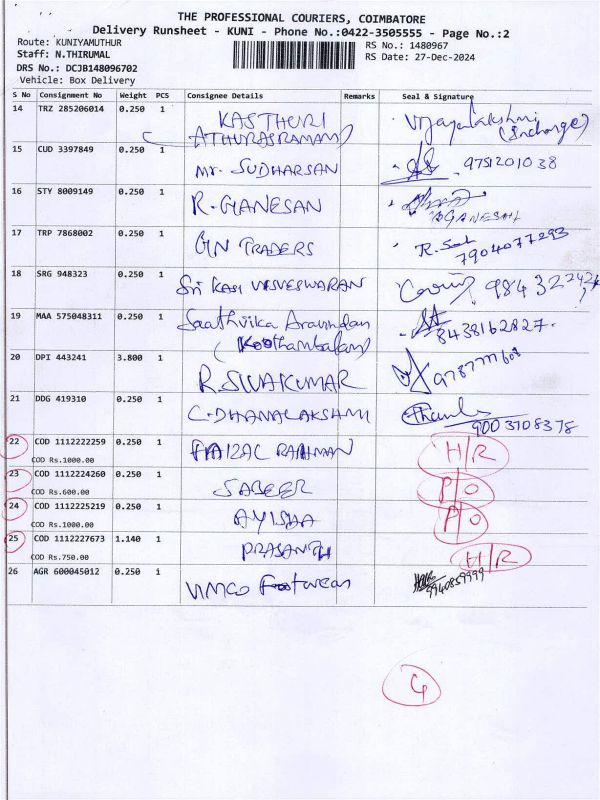 THE PROFESSIONAL COURIERS, COIMBATORE
Delivery Runsheet - KUNI - Phone No.:0422-3505555 - Page No.:2
Route: KUNIYAMUTHUR
RS No.: 1480967
Staff: N.THIRUMAL
RS Date: 27-Dec-2024
DRS No.: DCJB148096702
Vehicle: Box Delivery
S No Consignment No Weight PCS Consignee Details Remarks Seal & Signature
14 TRZ 285206014 0.250 1 KASTHURI Vijayalakshmi
(ATHURASRAMAM) (Incharge)
15 CUD 3397849 0.250 1 Mr. SUDHARSAN 9751201038
16 STY 8009149 0.250 1 R. GANESAN
GANESH
17 TRP 7868002 0.250 1 GN TRADERS
7904077293
18 SRG 948323 0.250 1 Sri KASI VISVESWARAN
19 MAA 575048311 0.250 1 Saathvika Aravindan
(Koothambalam) 8438162827.
20 DPI 443241 3.800 1 R. SIVAKUMAR
21 DDG 419310 0.250 1 C. DHANALAKSHMI
9003108378
22 COD 1112222259 0.250 1 FAIZAL RAHMAN H/R
COD Rs.1000.00
23 COD 1112224260 0.250 1 SABEER P/O
COD Rs.600.00
24 COD 1112225219 0.250 1 AYISHA P/O
COD Rs.1000.00
25 COD 1112227673 1.140 1 PRASANTH H/R
COD Rs.750.00
26 AGR 600045012 0.250 1 VMCO Footwear
9940859999
4